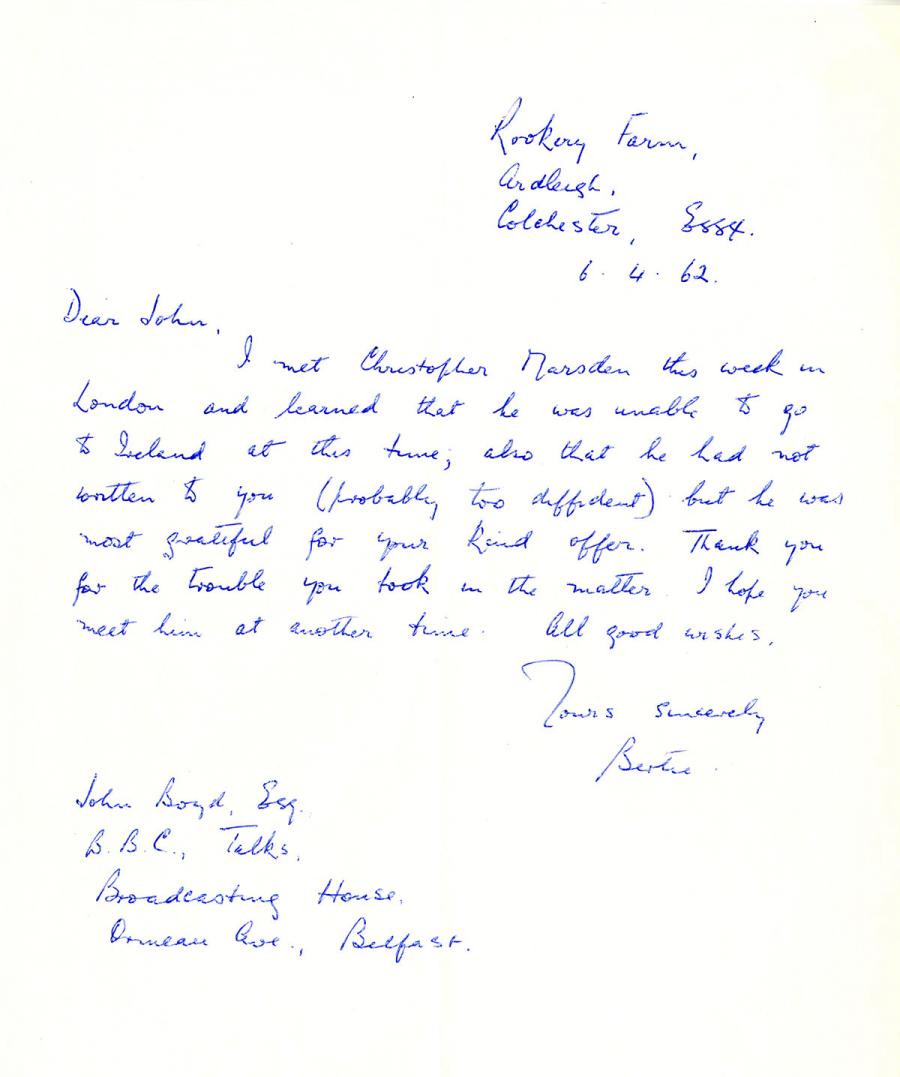 Rookery Farm,
Ardleigh,
Colchester, Essex.
6. 4. 62.
Dear John,
I met Christopher Marsden this week in
London and learned that he was unable to go
to Ireland at this time; also that he had not
written to you (probably too diffident) but he was
most grateful for your kind offer. Thank you
for the trouble you took in the matter. I hope you
meet him at another time. All good wishes,
Yours sincerely
Bertie.
John Boyd, Esq.
B.B.C., Talks,
Broadcasting House,
Ormeau Ave., Belfast.